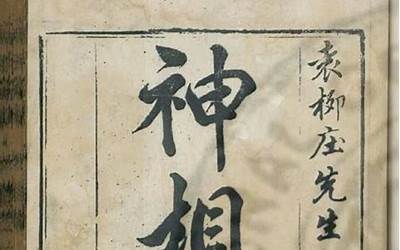 袁柳庄先生
神相